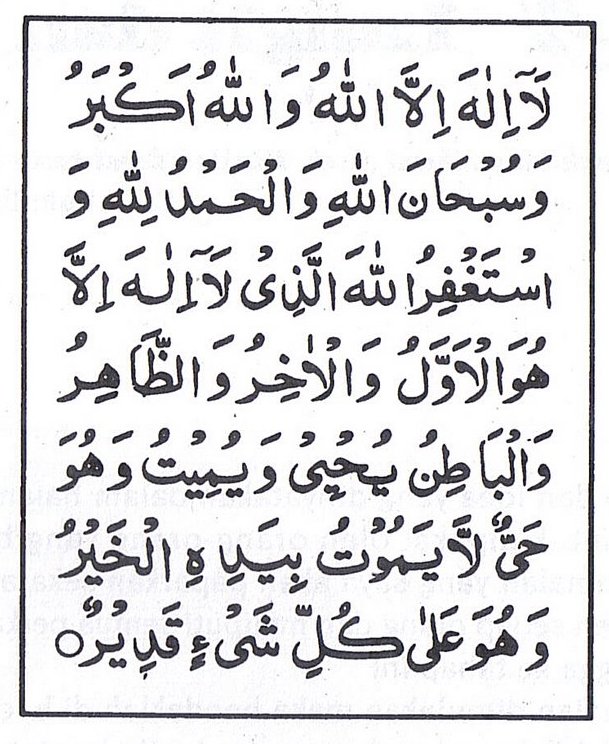 لَآ اِلٰهَ اِلَّا اللّٰهُ وَ اللّٰهُ اَكْبَرُ
وَسُبْحَانَ اللّٰهِ وَالْحَمْدُ لِلّٰهِ وَ
اسْتَغْفِرُ اللّٰهَ الَّذِىْ لَآ اِلٰهَ اِلَّا
هُوَ الْاَوَّلُ وَالْاٰخِرُ وَالظَّاهِرُ
وَالْبَاطِنُ يُحْيِىْ وَيُمِيْتُ وَهُوَ
حَىٌّ لَّا يَمُوْتُ بِيَدِهِ الْخَيْرُ
وَهُوَ عَلٰى كُلِّ شَىْءٍ قَدِيْرٌ ○